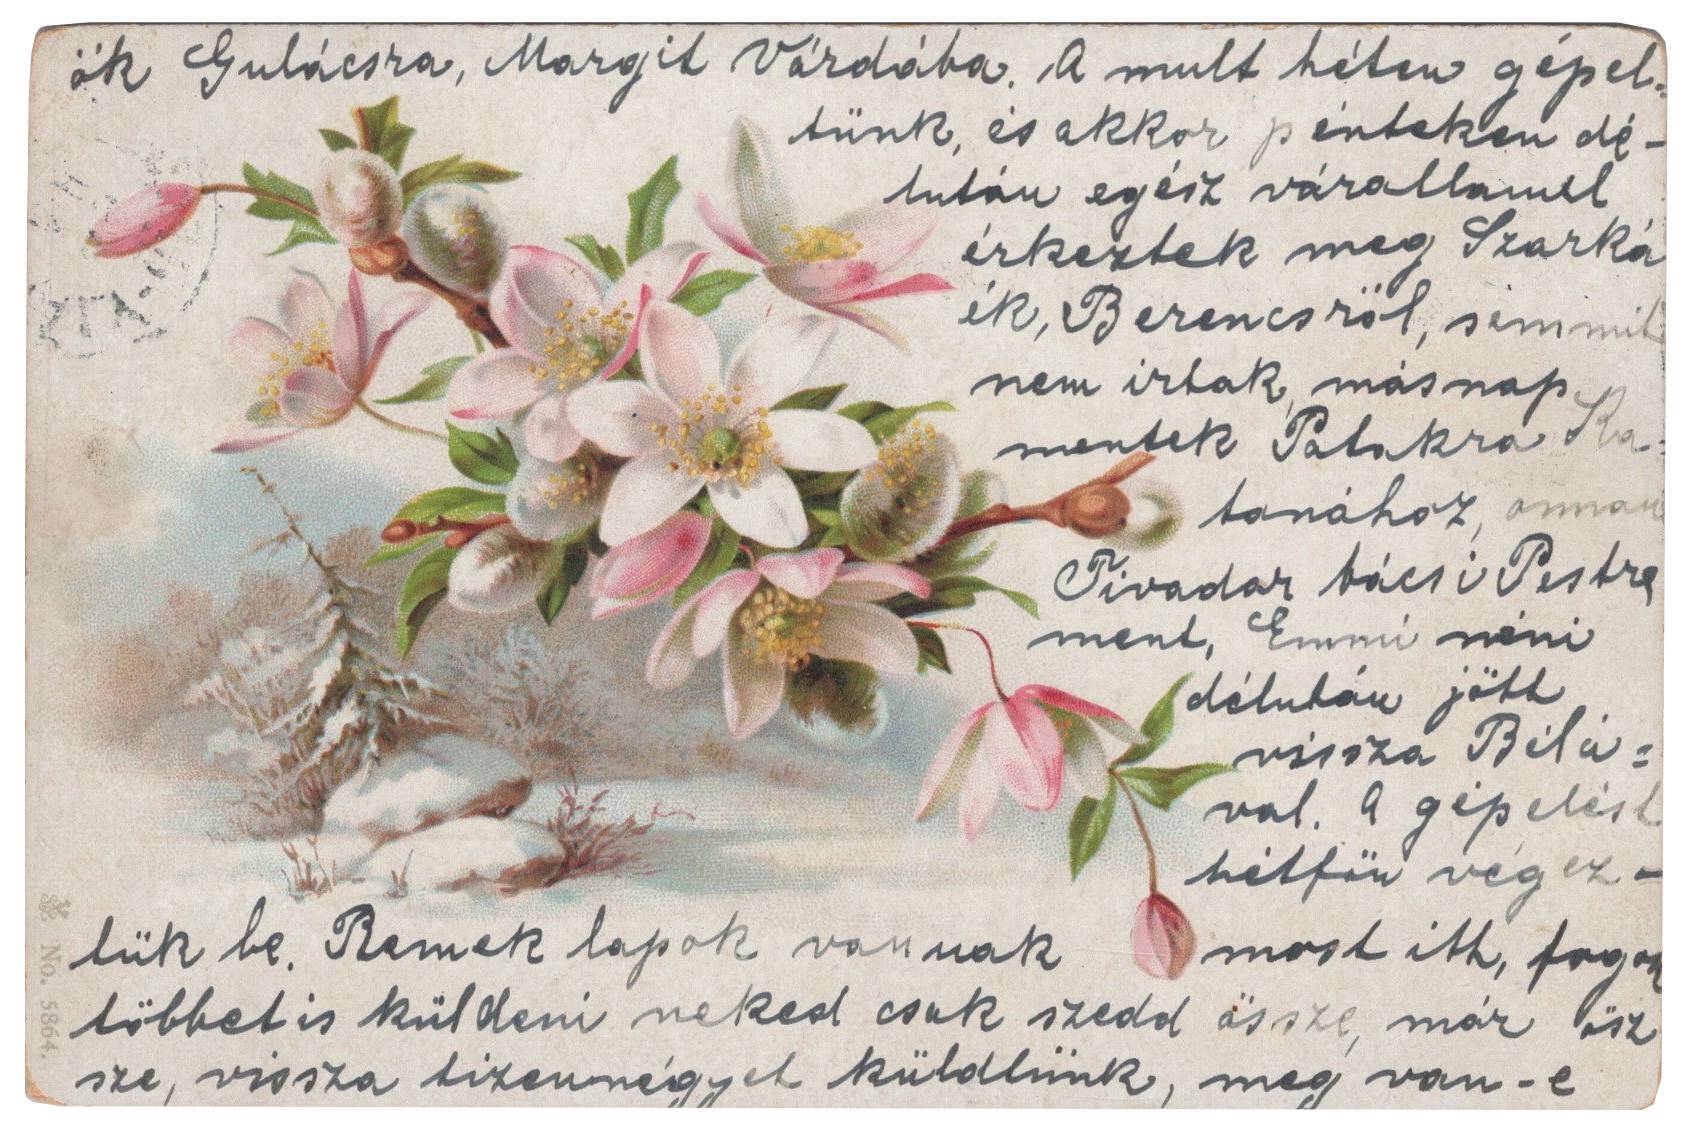 ők Gulácsra, Margit Várdába. A mult héten gépel-
tünk, és akkor pénteken dé-
lután egész váratlanúl
érkeztek meg Szarká
ék, Berencsről, semmit
nem irtak, másnap
mentek Patakra Ka-
tonához, onnan
Tivadar bácsi Pestre
ment, Emmi néni
délután jött
vissza Bélá-
val. A gépelést
hétfőn végez-
tük be. Remek lapok vannak most itt, fogok
többet is küldeni neked csak szedd össze, már ösz
sze, vissza tizennégyet küldtünk, meg van-e
No. 5864.